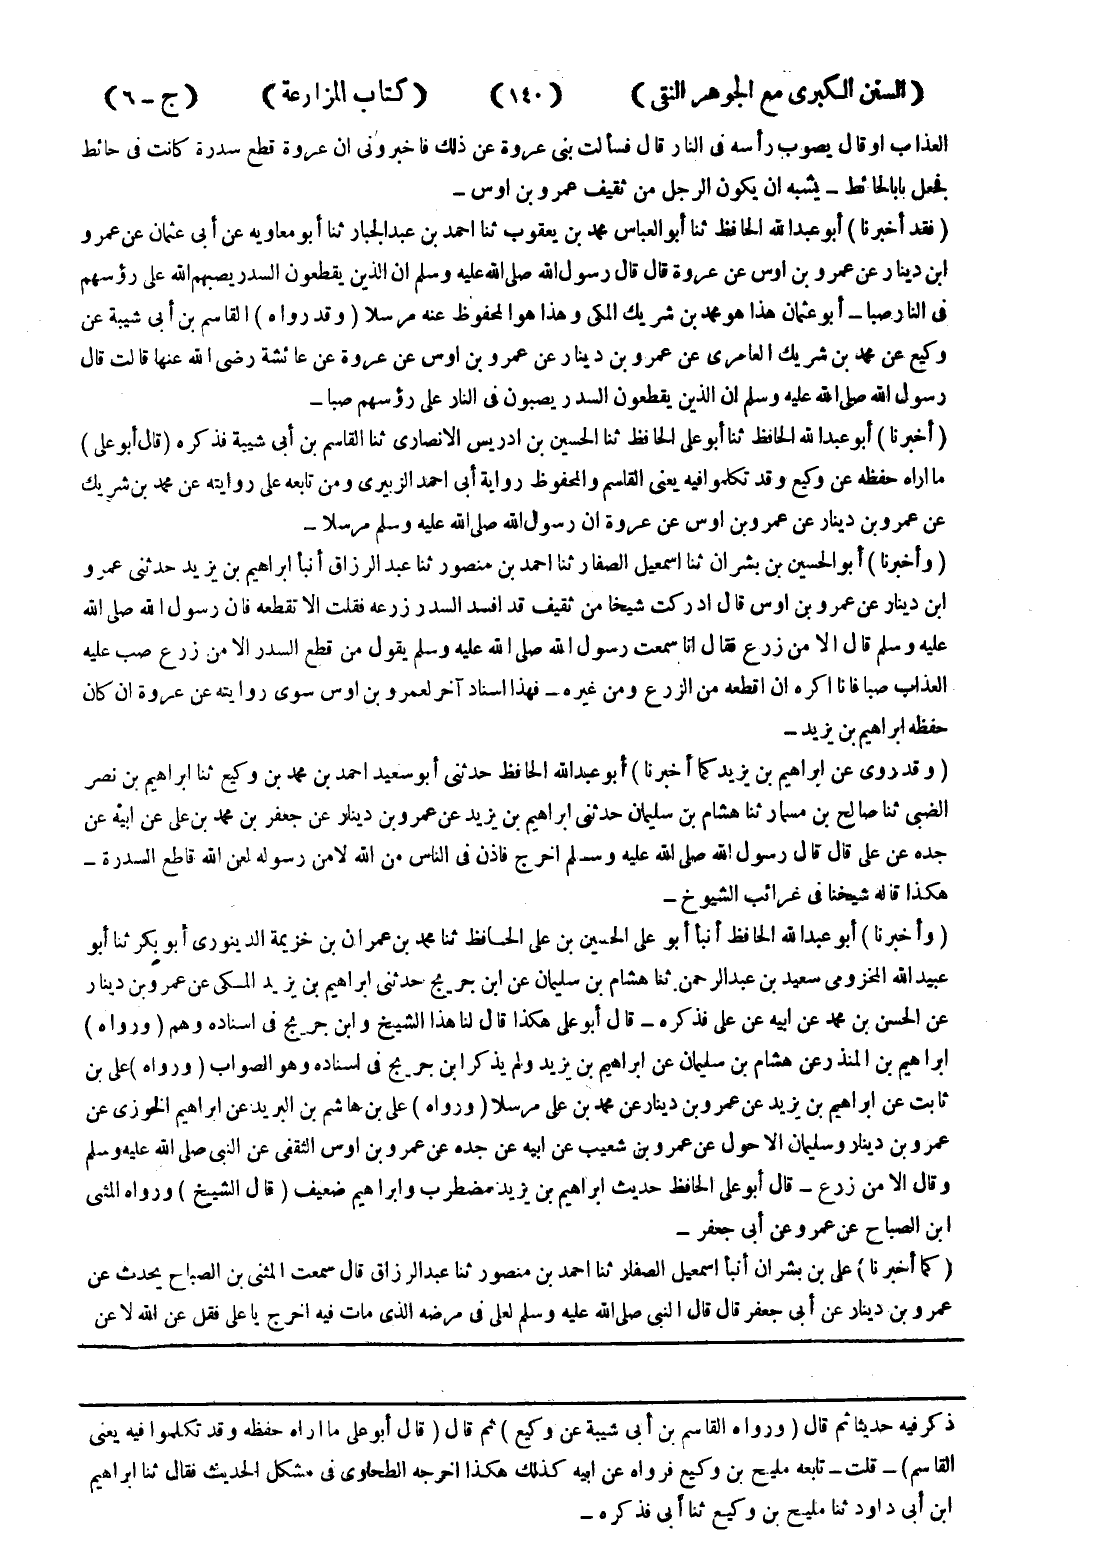 ( السنن الكبرى مع الجوهر النقى ) ( ١٤٠ ) ( كتاب المزارعة ) ( ج - ٦ )
العذاب او قال يصوب رأسه فى النار قال فسألت بنى عروة عن ذلك فاخبرونى ان عروة قطع سدرة كانت فى حائط
فجعل بابا لحائط ـ يشبه ان يكون الرجل من ثقيف عمرو بن اوس ـ
( فقد أخبرنا ) أبو عبد الله الحافظ ثنا أبو العباس محمد بن يعقوب ثنا احمد بن عبد الجبار ثنا أبو معاويه عن أبى عثمان عن عمرو
ابن دينار عن عمرو بن اوس عن عروة قال قال رسول الله صلى الله عليه وسلم ان الذين يقطعون السدر يصبهم الله على رؤسهم
فى النار صبا ـ أبو عثمان هذا هو محمد بن شريك المكى وهذا هو المحفوظ عنه مرسلا ( وقد رواه ) القاسم بن أبى شيبة عن
وكيع عن محمد بن شريك العامرى عن عمرو بن دينار عن عمرو بن اوس عن عروة عن عائشة رضى الله عنها قالت قال
رسول الله صلى الله عليه وسلم ان الذين يقطعون السدر يصبون فى النار على رؤسهم صبا ـ
( أخبرنا ) أبو عبد الله الحافظ ثنا أبو على الحافظ ثنا الحسين بن ادريس الانصارى ثنا القاسم بن أبى شيبة فذكره (قال أبو على )
ما اراه حفظه عن وكيع وقد تكلموا فيه يعنى القاسم والمحفوظ رواية أبى احمد الزبيرى ومن تابعه على روايته عن محمد بن شريك
عن عمرو بن دينار عن عمرو بن اوس عن عروة ان رسول الله صلى الله عليه وسلم مرسلا ـ
( وأخبرنا ) أبو الحسين بن بشران ثنا اسمعيل الصفار ثنا احمد بن منصور ثنا عبد الرزاق أنبأ ابراهيم بن يزيد حدثنى عمرو
ابن دينار عن عمرو بن اوس قال ادركت شيخا من ثقيف قد افسد السدر زرعه فقلت الا تقطعه فان رسول الله صلى الله
عليه وسلم قال الا من زرع فقال انا سمعت رسول الله صلى الله عليه وسلم يقول من قطع السدر الا من زرع صب عليه
العذاب صبا فانا اكره ان اقطعه من الزرع ومن غيره ـ فهذا اسناد آخر لعمرو بن اوس سوى روايته عن عروة ان كان
حفظه ابراهيم بن يزيد ـ
( وقد روى عن ابراهيم بن يزيد كما أخبرنا ) أبو عبد الله الحافظ حدثنى أبو سعيد احمد بن محمد بن وكيع ثنا ابراهيم بن نصر
الضبى ثنا صالح بن مسمار ثنا هشام بن سليمان حدثنى ابراهيم بن يزيد عن عمرو بن دينار عن جعفر بن محمد بن على عن ابيه عن
جده عن على قال قال رسول الله صلى الله عليه وسلم اخرج فاذن فى الناس من الله لا من رسوله لعن الله قاطع السدرة ـ
هكذا قاله شيخنا فى غرائب الشيوخ ـ
( وأخبرنا ) أبو عبد الله الحافظ أنبأ أبو على الحسين بن على الحافظ ثنا محمد بن عمران بن خزيمة الدينورى أبو بكر ثنا أبو
عبيد الله المخزومى سعيد بن عبد الرحمن ثنا هشام بن سليمان عن ابن جريج حدثنى ابراهيم بن يزيد المكى عن عمرو بن دينار
عن الحسن بن محمد عن ابيه عن على فذكره ـ قال أبو على هكذا قال لنا هذا الشيخ وابن جريج فى اسناده وهم ( ورواه )
ابراهيم بن المنذر عن هشام بن سليمان عن ابراهيم بن يزيد ولم يذكر ابن جريج فى اسناده وهو الصواب ( ورواه ) على بن
ثابت عن ابراهيم بن يزيد عن عمرو بن دينار عن محمد بن على مرسلا ( ورواه ) على بن هاشم بن البريد عن ابراهيم الخوزى عن
عمرو بن دينار وسليمان الاحول عن عمرو بن شعيب عن ابيه عن جده عن عمرو بن اوس الثقفى عن النبى صلى الله عليه وسلم
وقال الا من زرع ـ قال أبو على الحافظ حديث ابراهيم بن يزيد مضطرب وابراهيم ضعيف ( قال الشيخ ) ورواه المثنى
ابن الصباح عن عمرو عن أبى جعفر ـ
( كما أخبرنا ) على بن بشران أنبأ اسمعيل الصفار ثنا احمد بن منصور ثنا عبد الرزاق قال سمعت المثنى بن الصباح يحدث عن
عمرو بن دينار عن أبى جعفر قال قال النبى صلى الله عليه وسلم لعلى فى مرضه الذى مات فيه اخرج يا على فقل عن الله لا عن
ذكر فيه حديثا ثم قال ( ورواه القاسم بن أبى شيبة عن وكيع ) ثم قال ( قال أبو على ما اراه حفظه وقد تكلموا فيه يعنى
القاسم) ـ قلت ـ تابعه مليح بن وكيع فرواه عن ابيه كذلك هكذا اخرجه الطحاوى فى مشكل الحديث فقال ثنا ابراهيم
ابن أبى داود ثنا مليح بن وكيع ثنا أبى فذكره ـ